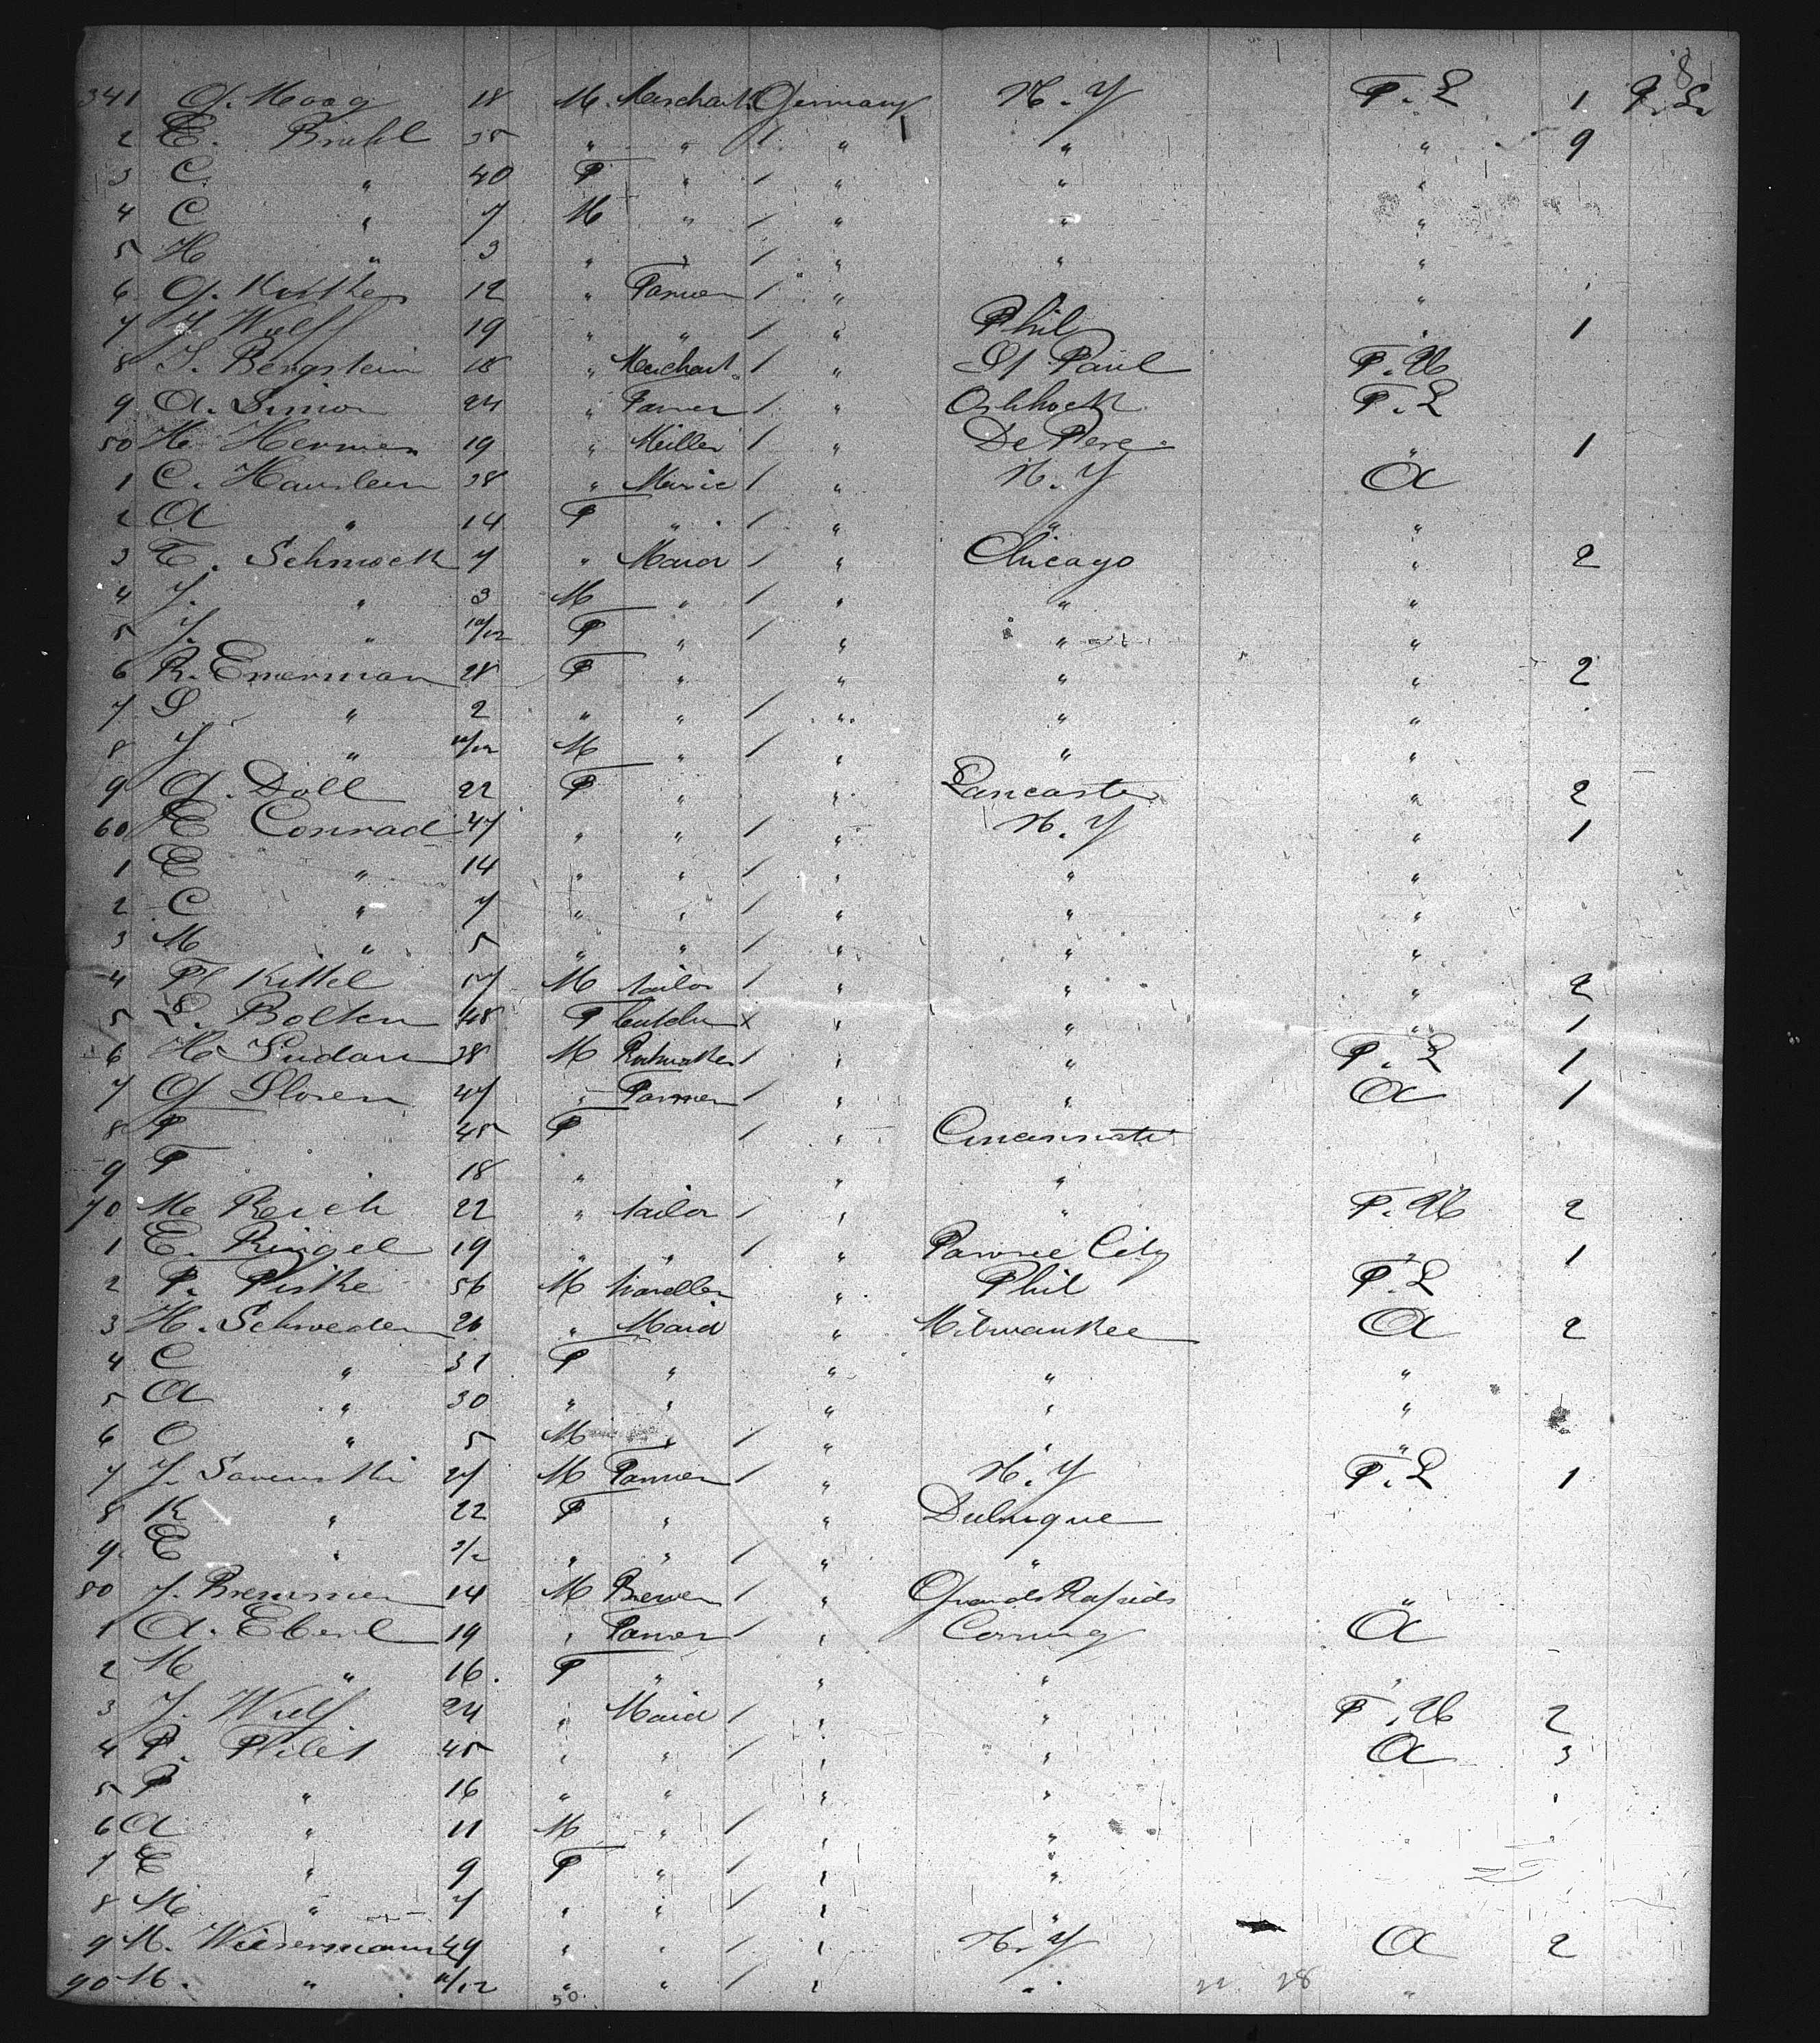 8
341 G. Haag 18 M. Merchant Germany N.Y F.L 1 F.L.
2 E. Bruhl 35 " " / " " " 9
3 C. " 40 F " / " " "
4 C " 7 M " / " " "
5 H " 3 " " / " " "
6 G. 12 " Farmer / " " "
7 J. Wulff 19 " " / " Phil " 1
8 S. Bergstein 18 " Merchant / " St. Paul F.H
9 A. Simon 24 " Farmer / " Oshkosh F.L
50 H. Hermes 19 " Miller / " De Pere " 1
1 C. 38 " Music / " N.Y A
2 A " 14 F " / " " "
3 E. Schmock 7 " Maid / " Chicago " 2
4 J. " 3 M " / " " "
5 J. " 10/12 F " / " " "
6 R. Emerman 28 F " " " " 2
7 S " 2 " " / " " "
8 J " 10/12 M " / " " "
9 G. Doll 22 F " " Lancaster " 2
60 E Conrad 47 " " / " N.Y " 1
1 E " 14 " " / " " "
2 C " 7 " " / " " "
3 M " 5 " " / " " "
4 F Kittel 57 M tailor / " " " 2
5 L. Bolten 48 F x " " " 1
6 H 38 M / " " F.L 1
7 G 47 " Farmer / " " A 1
8 F 45 F / " Cincinnati
9 F 18 " " "
70 M Reich 22 " tailor / " " F.H 2
1 E. Ringel 19 " " / " Pawnee City 1
2 P. 56 M " Phil F.L
3 H. Schroeder 26 " Maid " Milwaukee A 2
4 C " 31 F " " " "
5 A " 30 " " " " "
6 O " 5 M " / " " "
7 J. 27 M Farmer / " N.Y F.L 1
8 K " 22 F " " Dubuque
9 E " " " / " "
80 J. Bremmer 14 M Brewer / " Grands Rapids "
1 A. Eberl 19 " Farmer / " Corning A
2 M " 16. F " " " "
3 J. Wulf 24 " Maid / " " F.H 2
4 P. 45 " " / " " A 3
5 P " 16 " " " "
6 A " 11 M " / " "
7 E " 9 F " / " "
8 M " 7 " " / " "
9 M. Wiesermann 49 " " / " N.Y A 2
90 M. " " " / " " "
50